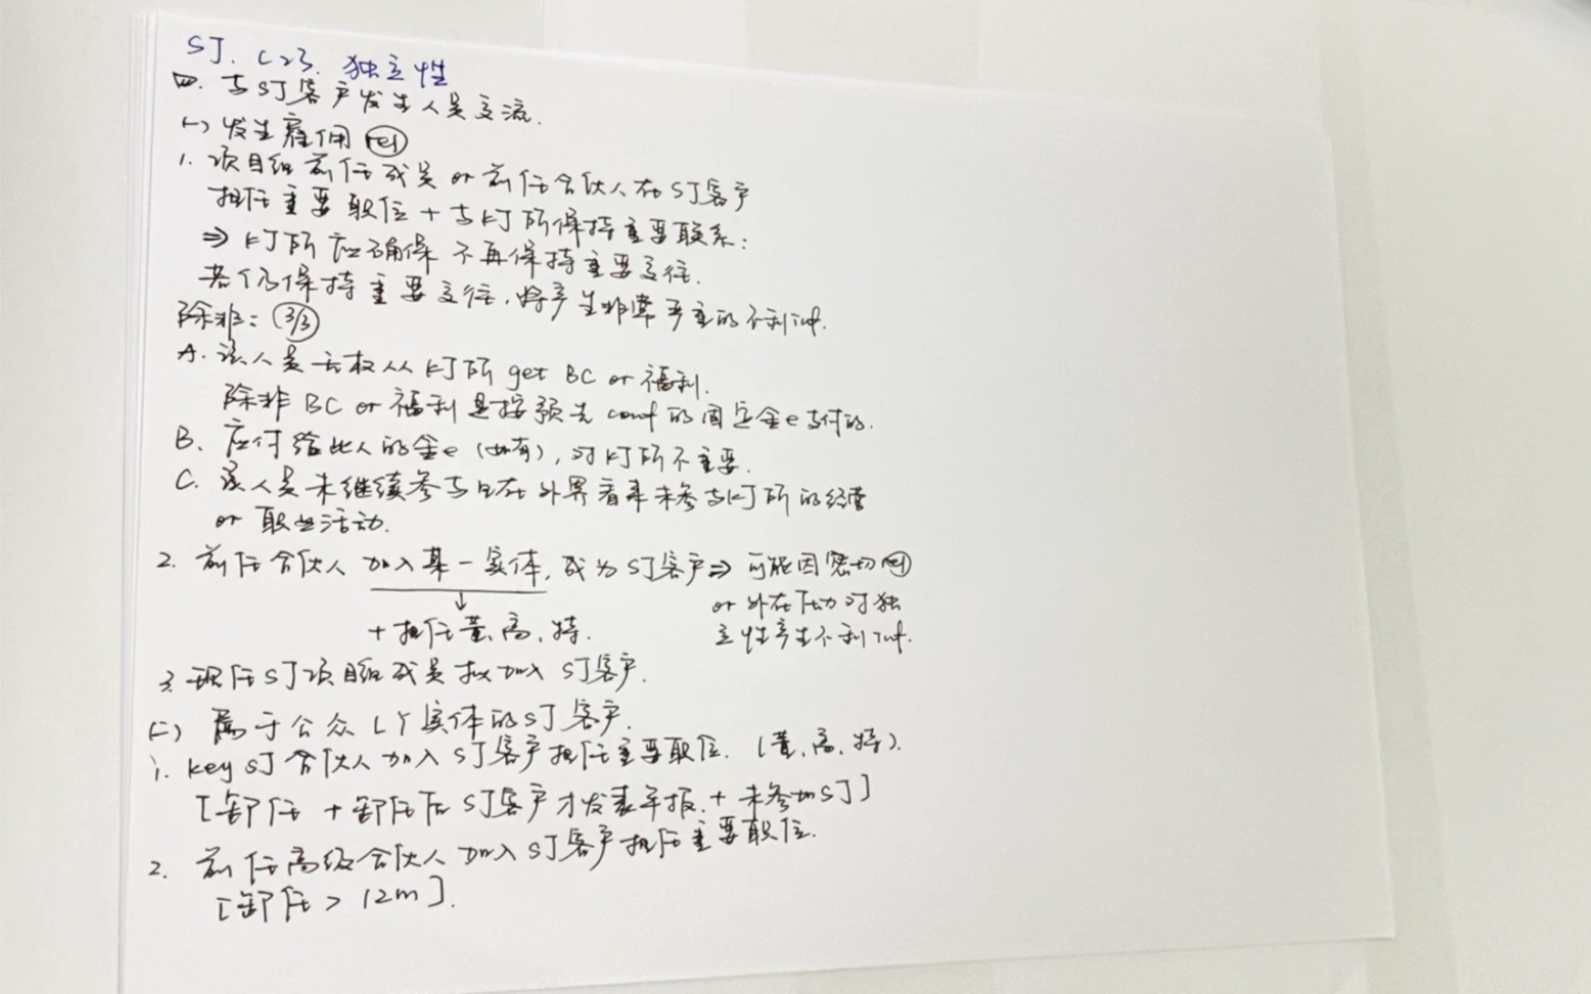 SJ. C23. 独立性
四. 与SJ客户发生人员交流.
(一) 发生雇佣 rel
1. 项目组前任成员 or 前任合伙人在SJ客户
担任重要职位 + 与KJ所保持重要联系:
⇒ KJ所应确保不再保持重要交往.
若仍保持重要交往, 将产生非常严重的不利inf.
除非: 3/3
A. 该人员无权从KJ所 get BC or 福利.
除非 BC or 福利是按预先 conf 的固定金e支付的.
B. 应付给此人的金e (如有), 对KJ所不重要.
C. 该人员未继续参与且在外界看来未参与KJ所的经营
or 职业活动.
2. 前任合伙人加入某一实体, 成为SJ客户 ⇒ 可能因密切 rel
↓ or 外在压力对独
+ 担任董、高、特. 立性产生不利inf.
3. 现任SJ项目组成员拟加入SJ客户.
(二) 属于公众LY实体的SJ客户.
1. key SJ合伙人加入SJ客户担任重要职位. (董、高、特).
[卸任 + 卸任后SJ客户才发表年报 + 未参加SJ]
2. 前任高级合伙人加入SJ客户担任重要职位.
[卸任 > 12m].